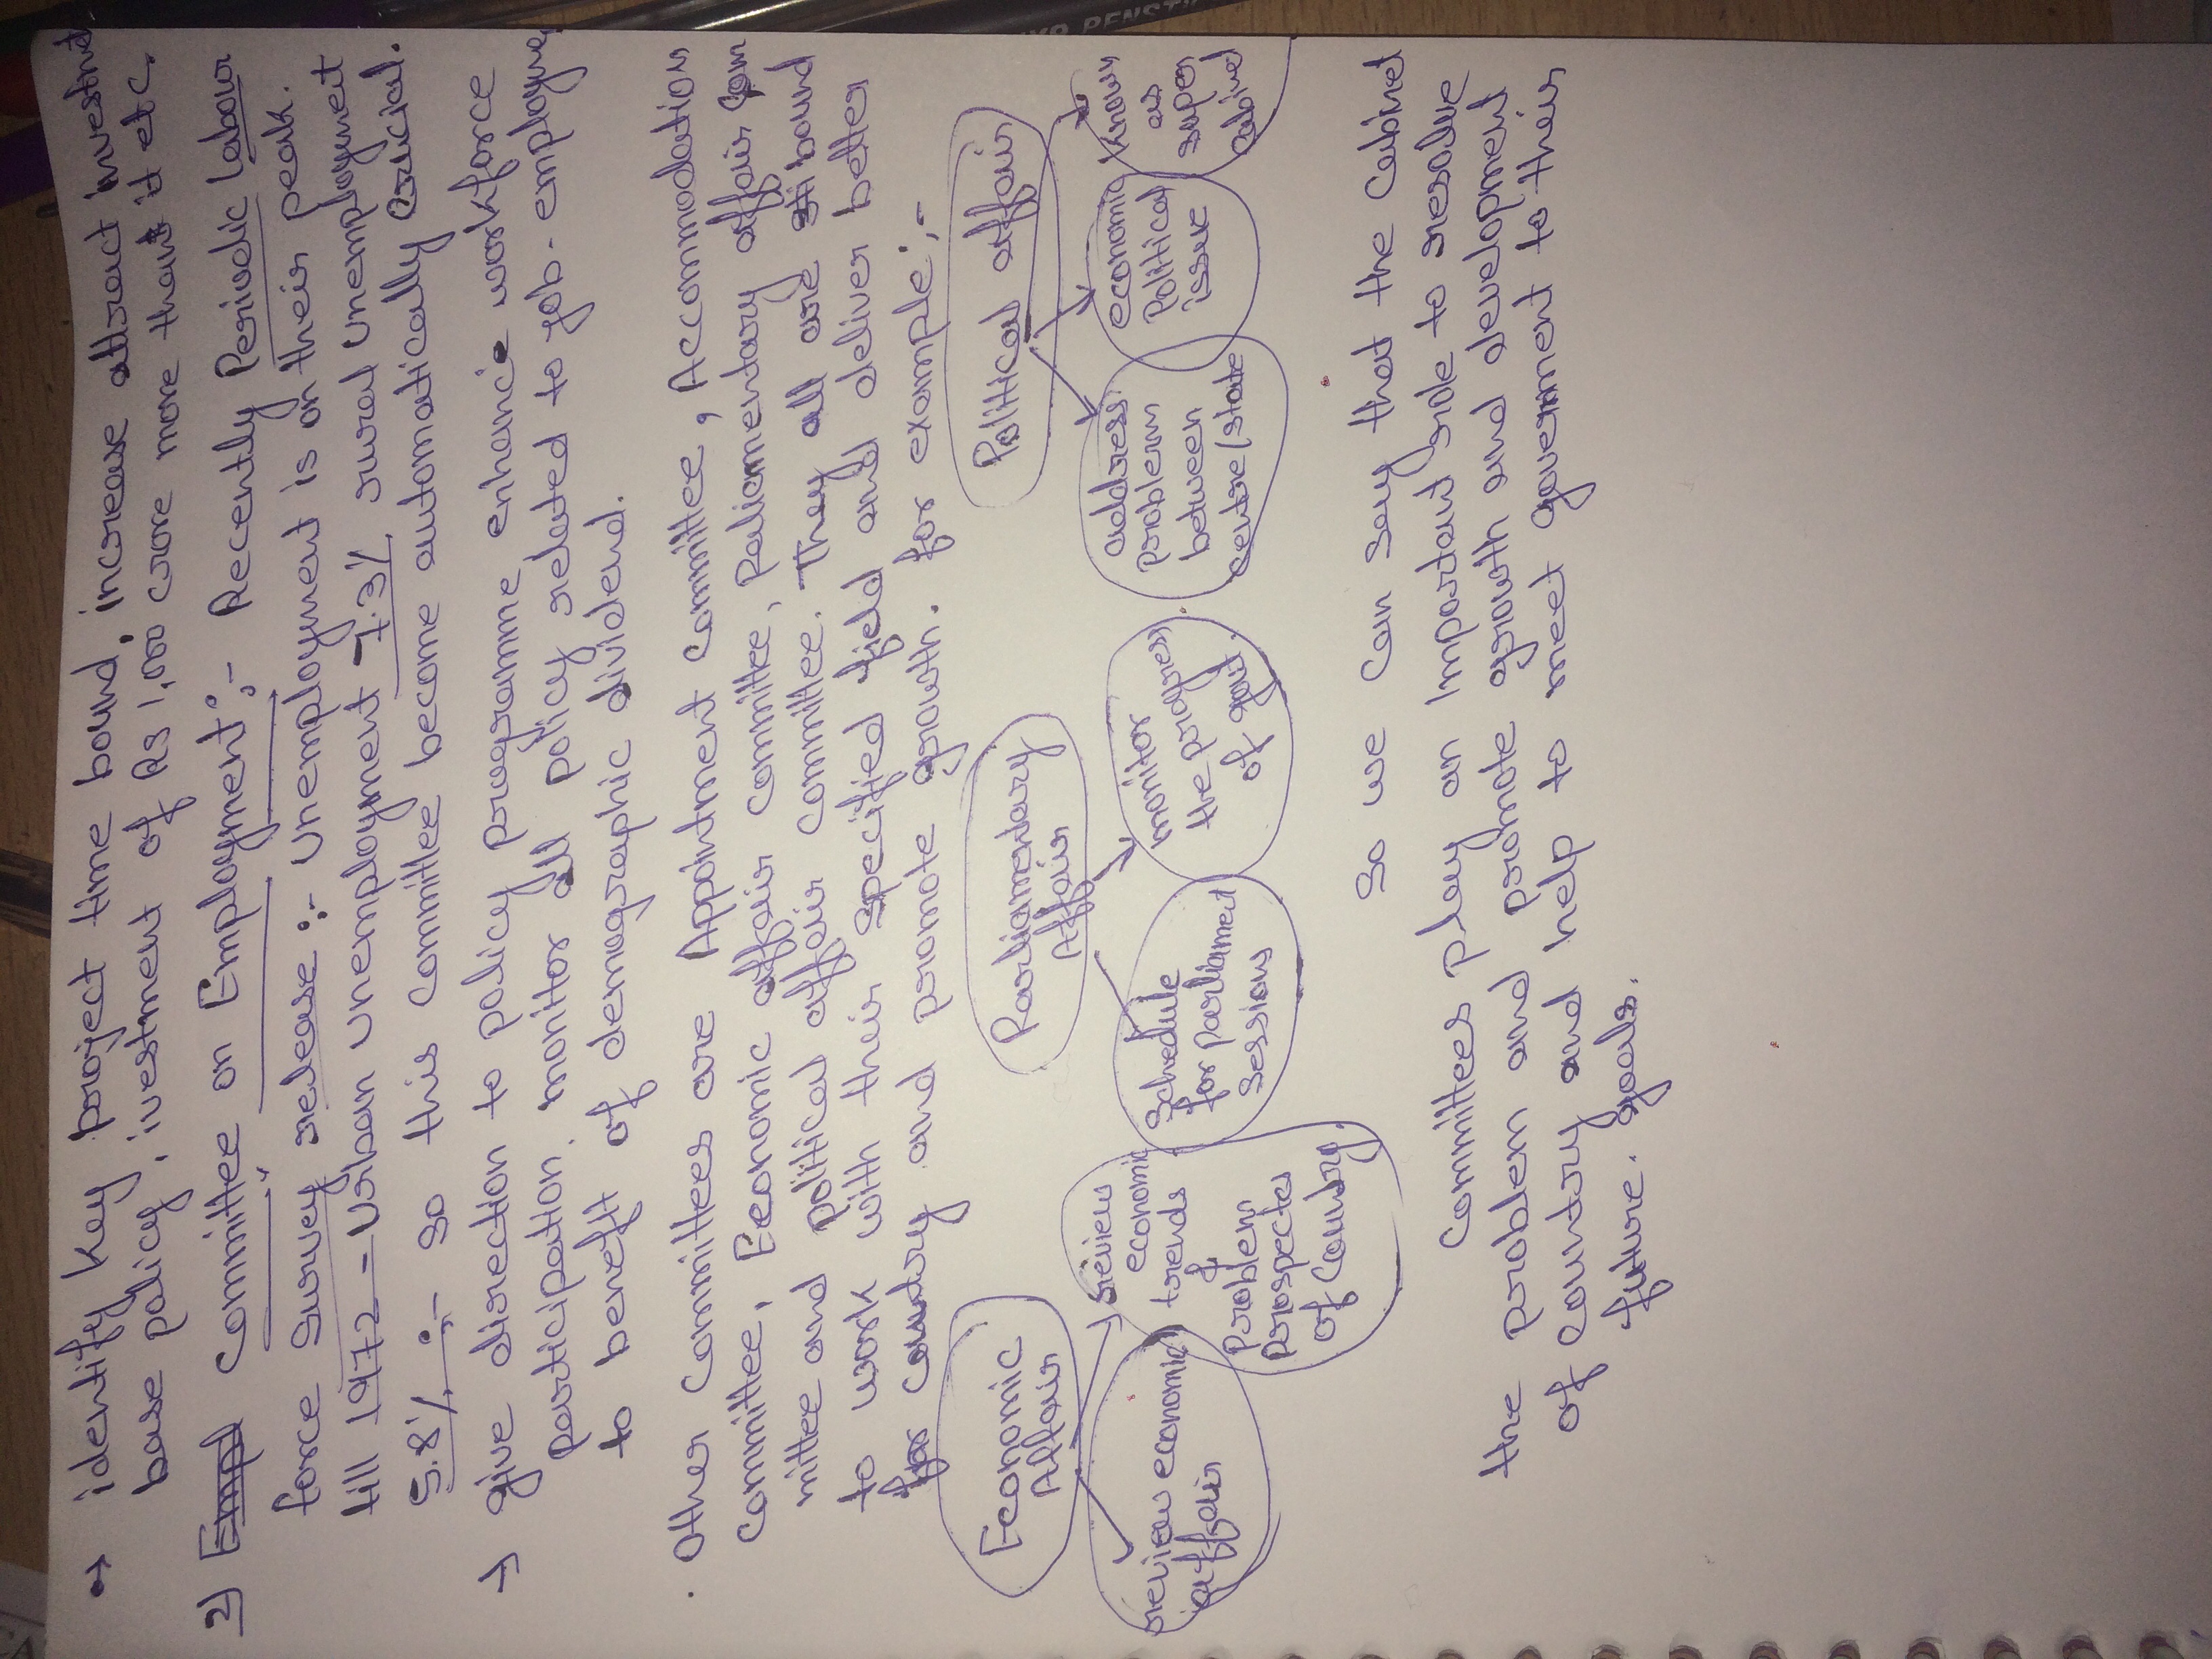 → identify key project time bound, increase attract investmet
base policy, investment of Rs 1,000 crore more than it etc.
2) Empl Committee on Employment :- Recently Periodic Labour
force Survey release :- unemployment is on their peak.
till 1972 - Urban unemployment 7.3% rural unemployment
5.8% :- so this committee become automatically crucial.
→ give direction to policy programme enhance workforce
participation. monitor all policy related to job-employmen
to benefit of demographic dividend.
. Other committees are Appointment Committee, Accommodation
Committee, Economic affair committee, Paliamentary affair Com
mittee and political affair committee. They all are bound
to work with their specified field and deliver better
for country and promote growth. for example :-
Economic Affair
Parliamentary Affair
Political affair
review economic affair
review economic trends & problem prospects of Country.
Schedule for parliament sessions
monitor the progress of govt.
address problem between centre/state
economic Political issue
known as super cabinet
So we can say that the Cabinet
Committees play an important role to resolve
the problem and promote growth and development
of country and help to meet government to their
future goals.